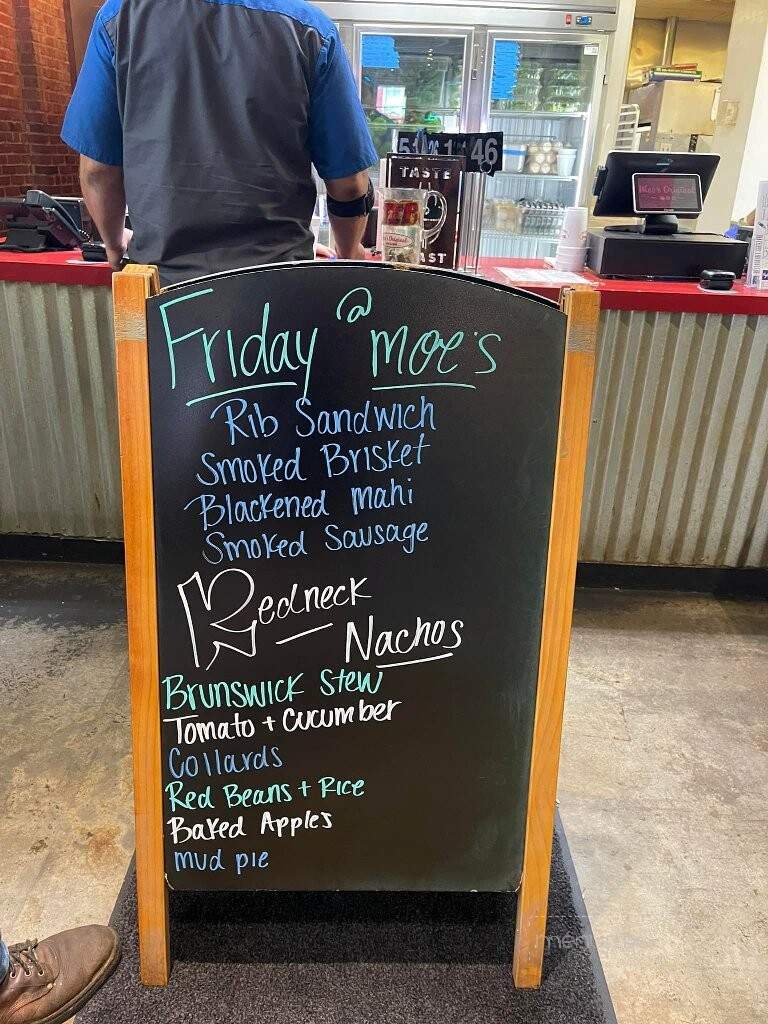 46
TASTE
Moe's Original
Friday @ Moe's
Rib Sandwich
Smoked Brisket
Blackened Mahi
Smoked Sausage
Redneck
Nachos
Brunswick Stew
Tomato + Cucumber
Collards
Red Beans + Rice
Baked Apples
mud pie